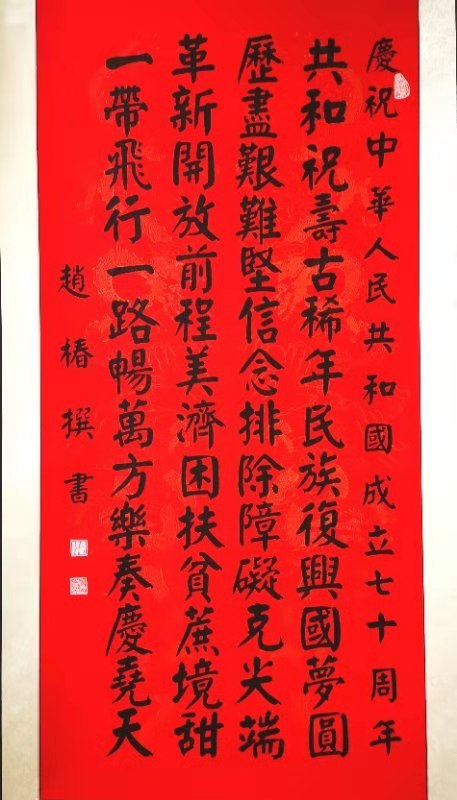 慶祝中華人民共和國成立七十周年
共和祝壽古稀年民族復興國夢圓
歷盡艱難堅信念排除障礙克尖端
革新開放前程美濟困扶貧蔗境甜
一帶飛行一路暢萬方樂奏慶堯天
趙椿撰書